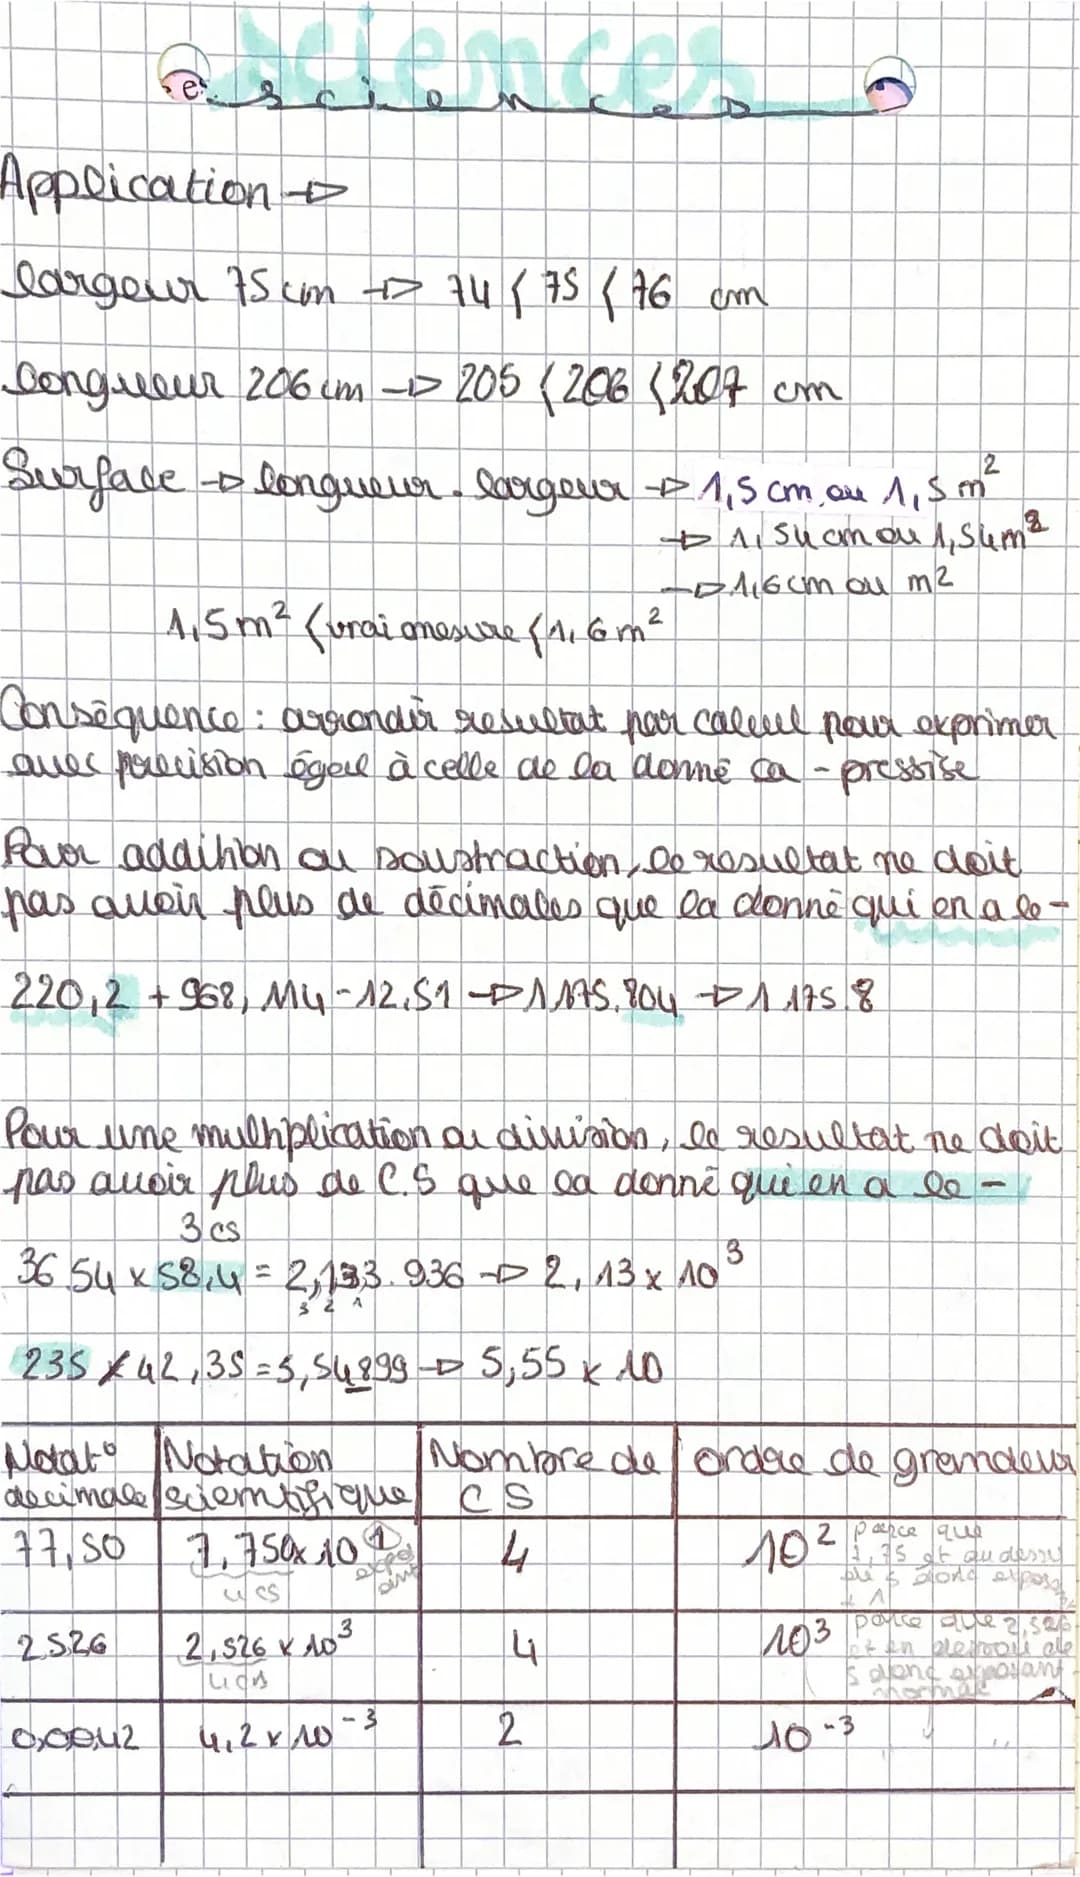 sciences
sciences
Application →
largeur 75 cm → 74 < 75 < 76 cm
longueur 206 cm → 205 < 206 < 207 cm
Surface → longueur . largeur → 1,5 cm ou 1,5 m²
→ 1,54 cm ou 1,54 m²
→ 1,6 cm ou m²
1,5 m² < vrai mesure < 1,6 m²
Conséquence : arrondir resultat par calcul pour exprimer
avec precision égal à celle de la donné la - pressise
Pour addition ou soustraction, le resultat ne doit
pas avoir plus de décimales que la donné qui en a le -
220,2 + 968,114 - 12,51 → 1175.804 → 1 175.8
Pour une multiplication ou division, le resultat ne doit
pas avoir plus de C.S que la donné qui en a le -
3 cs
36.54 x 58,4 = 2,133.936 → 2,13 x 10³
3 2 1
235 x 42,35 = 5,54899 → 5,55 x 10
Notat° Notation Nombre de ordre de grandeur
decimale scientifique C S
77,50 7,750x 10¹ 4 10² parce que
exposant 7,75 est au dessu
4 cs de 5 donc exposant
+ 1
2526 2,526 x 10³ 4 10³ parce que 2,526
4 cs est en dessou de
5 donc exposant
normal
0,0042 4,2 x 10⁻³ 2 10⁻³